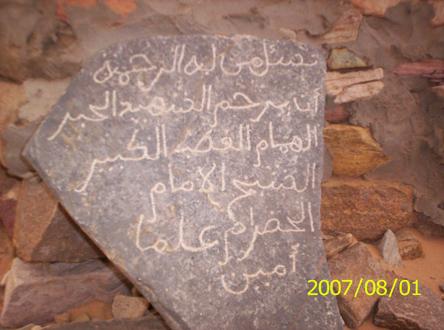 نسئل من له الرحمه
ان يرحم الشهيد الحبر
الهمام القطب الكبير
الشيخ الامام
الحضرام علما
امين
2007/08/01